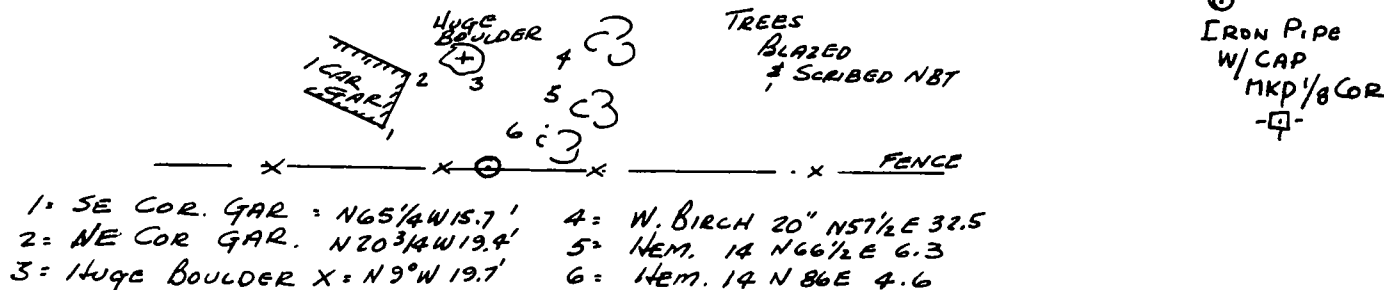 HUGE
BOULDER
1 CAR
GAR
1
2
3
4
5
6
TREES
BLAZED
& SCRIBED NBT
IRON PIPE
W/ CAP
MKD 1/8 COR
FENCE
1= SE COR. GAR = N65 1/4 W 15.7'
2= NE COR GAR. N20 3/4 W 19.4'
3= HUGE BOULDER X= N 9° W 19.7'
4= W. BIRCH 20" N57 1/2 E 32.5
5= HEM. 14 N66 1/2 E 6.3
6= HEM. 14 N 86E 4.6